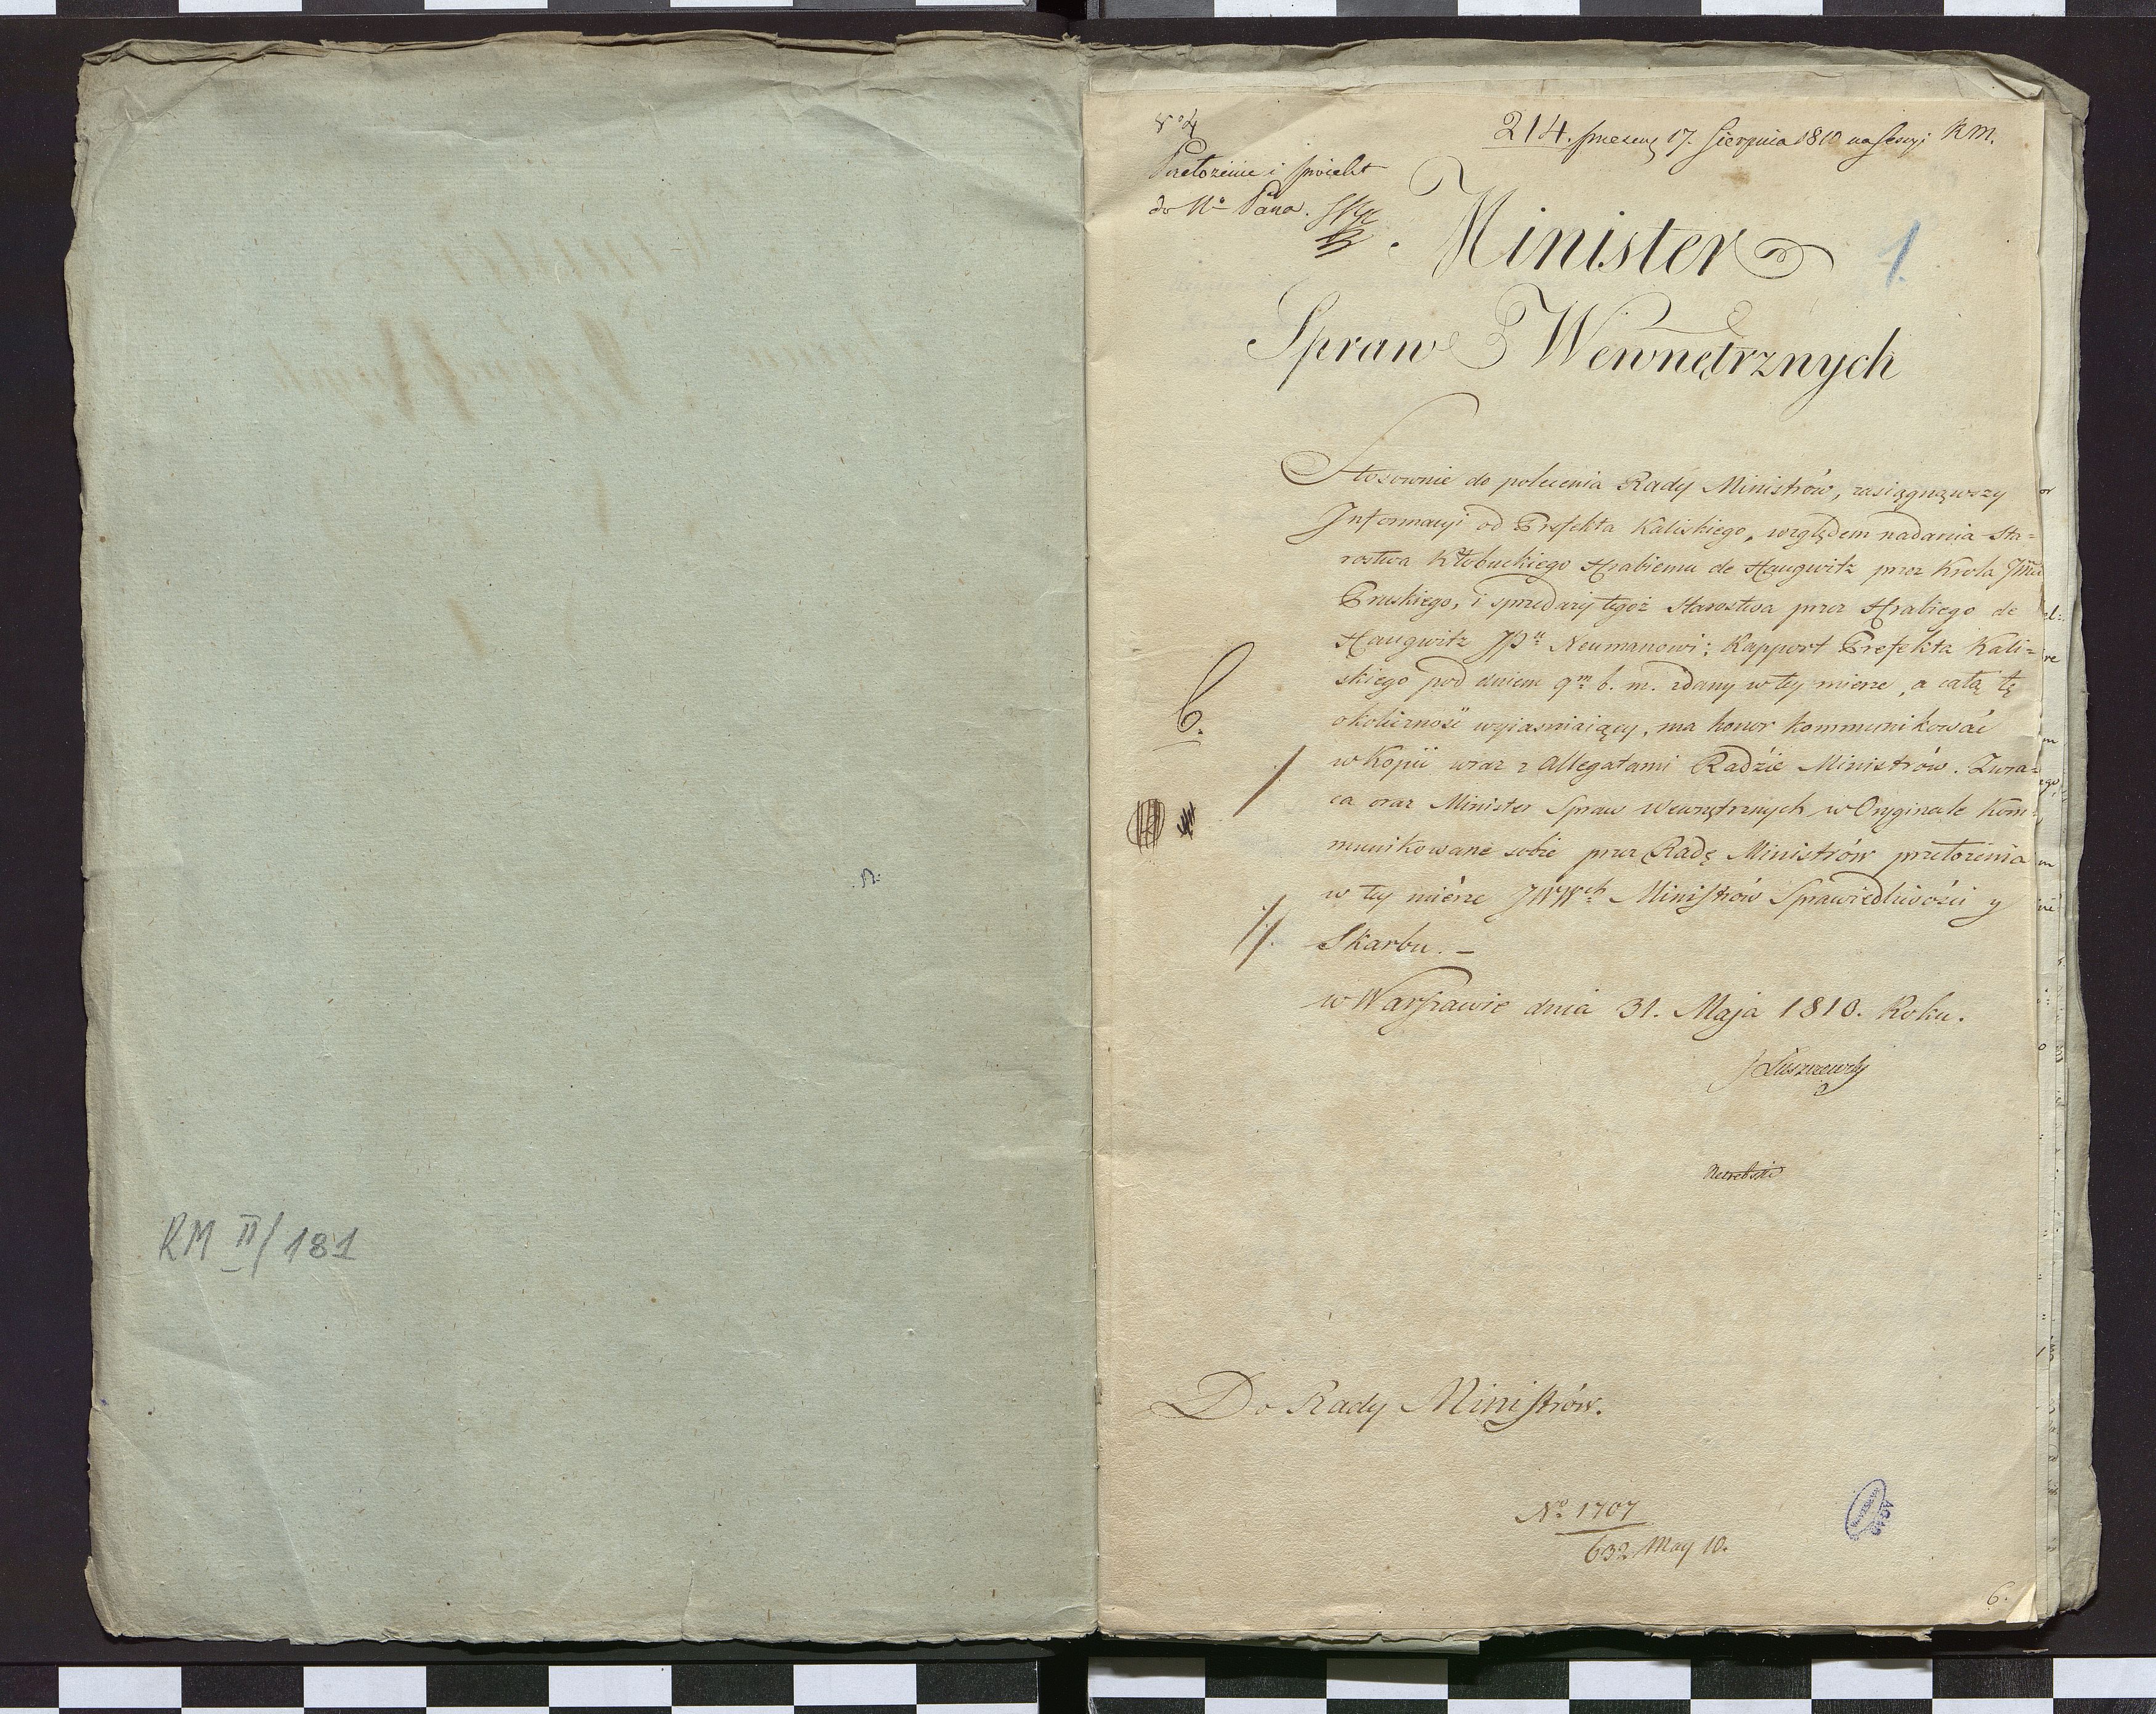 RM II/181
214. praesen; 17. Sierpnia 1810 na Sessyi RM.
Przełożenie i proiekt
do Nº Pana.
1.
Minister
Spraw Wewnętrznych
Stosownie do polecenia Rady Ministrów, zasiągnąwszy
Informacyi od Prefekta Kaliskiego, względem nadania Sta=
rostwa Kłobuckiego Hrabiemu de Haugwitz przez Krola Jmci
Pruskiego, i sprzedaży tegoż Starostwa przez Hrabiego de
Haugwitz JPu Neumanowi; Rapport Prefekta Kali=
skiego pod dniem 9m b. m. zdany w tey mierze, a całą tę
okoliczność wyiaśniaiący, ma honor kommunikować
w Kopii wraz z Allegatami Radzie Ministrów. Zwra=
ca oraz Minister Spraw Wewnętrznych w Oryginale Kom=
munikowane sobie przez Radę Ministrów przełożenia
w tey mierze JWWch Ministrów Sprawiedliwości y
Skarbu. –
w Warszawie dnia 31. Maja 1810. Roku.
J Łuszczewski
Do Rady Ministrów.
No. 1707
632 May 10.
AGAD
6.